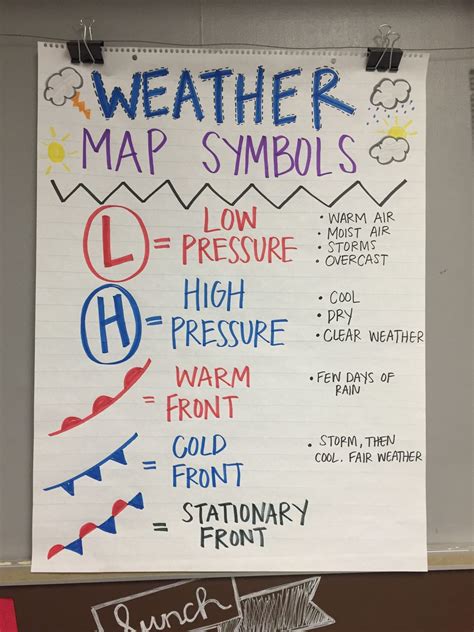 WEATHER
MAP SYMBOLS
L = LOW
PRESSURE
• WARM AIR
• MOIST AIR
• STORMS
• OVERCAST
H = HIGH
PRESSURE
• COOL
• DRY
• CLEAR WEATHER
= WARM
FRONT
• FEW DAYS OF
RAIN
= COLD
FRONT
• STORM, THEN
COOL. FAIR WEATHER
= STATIONARY
FRONT
Lunch